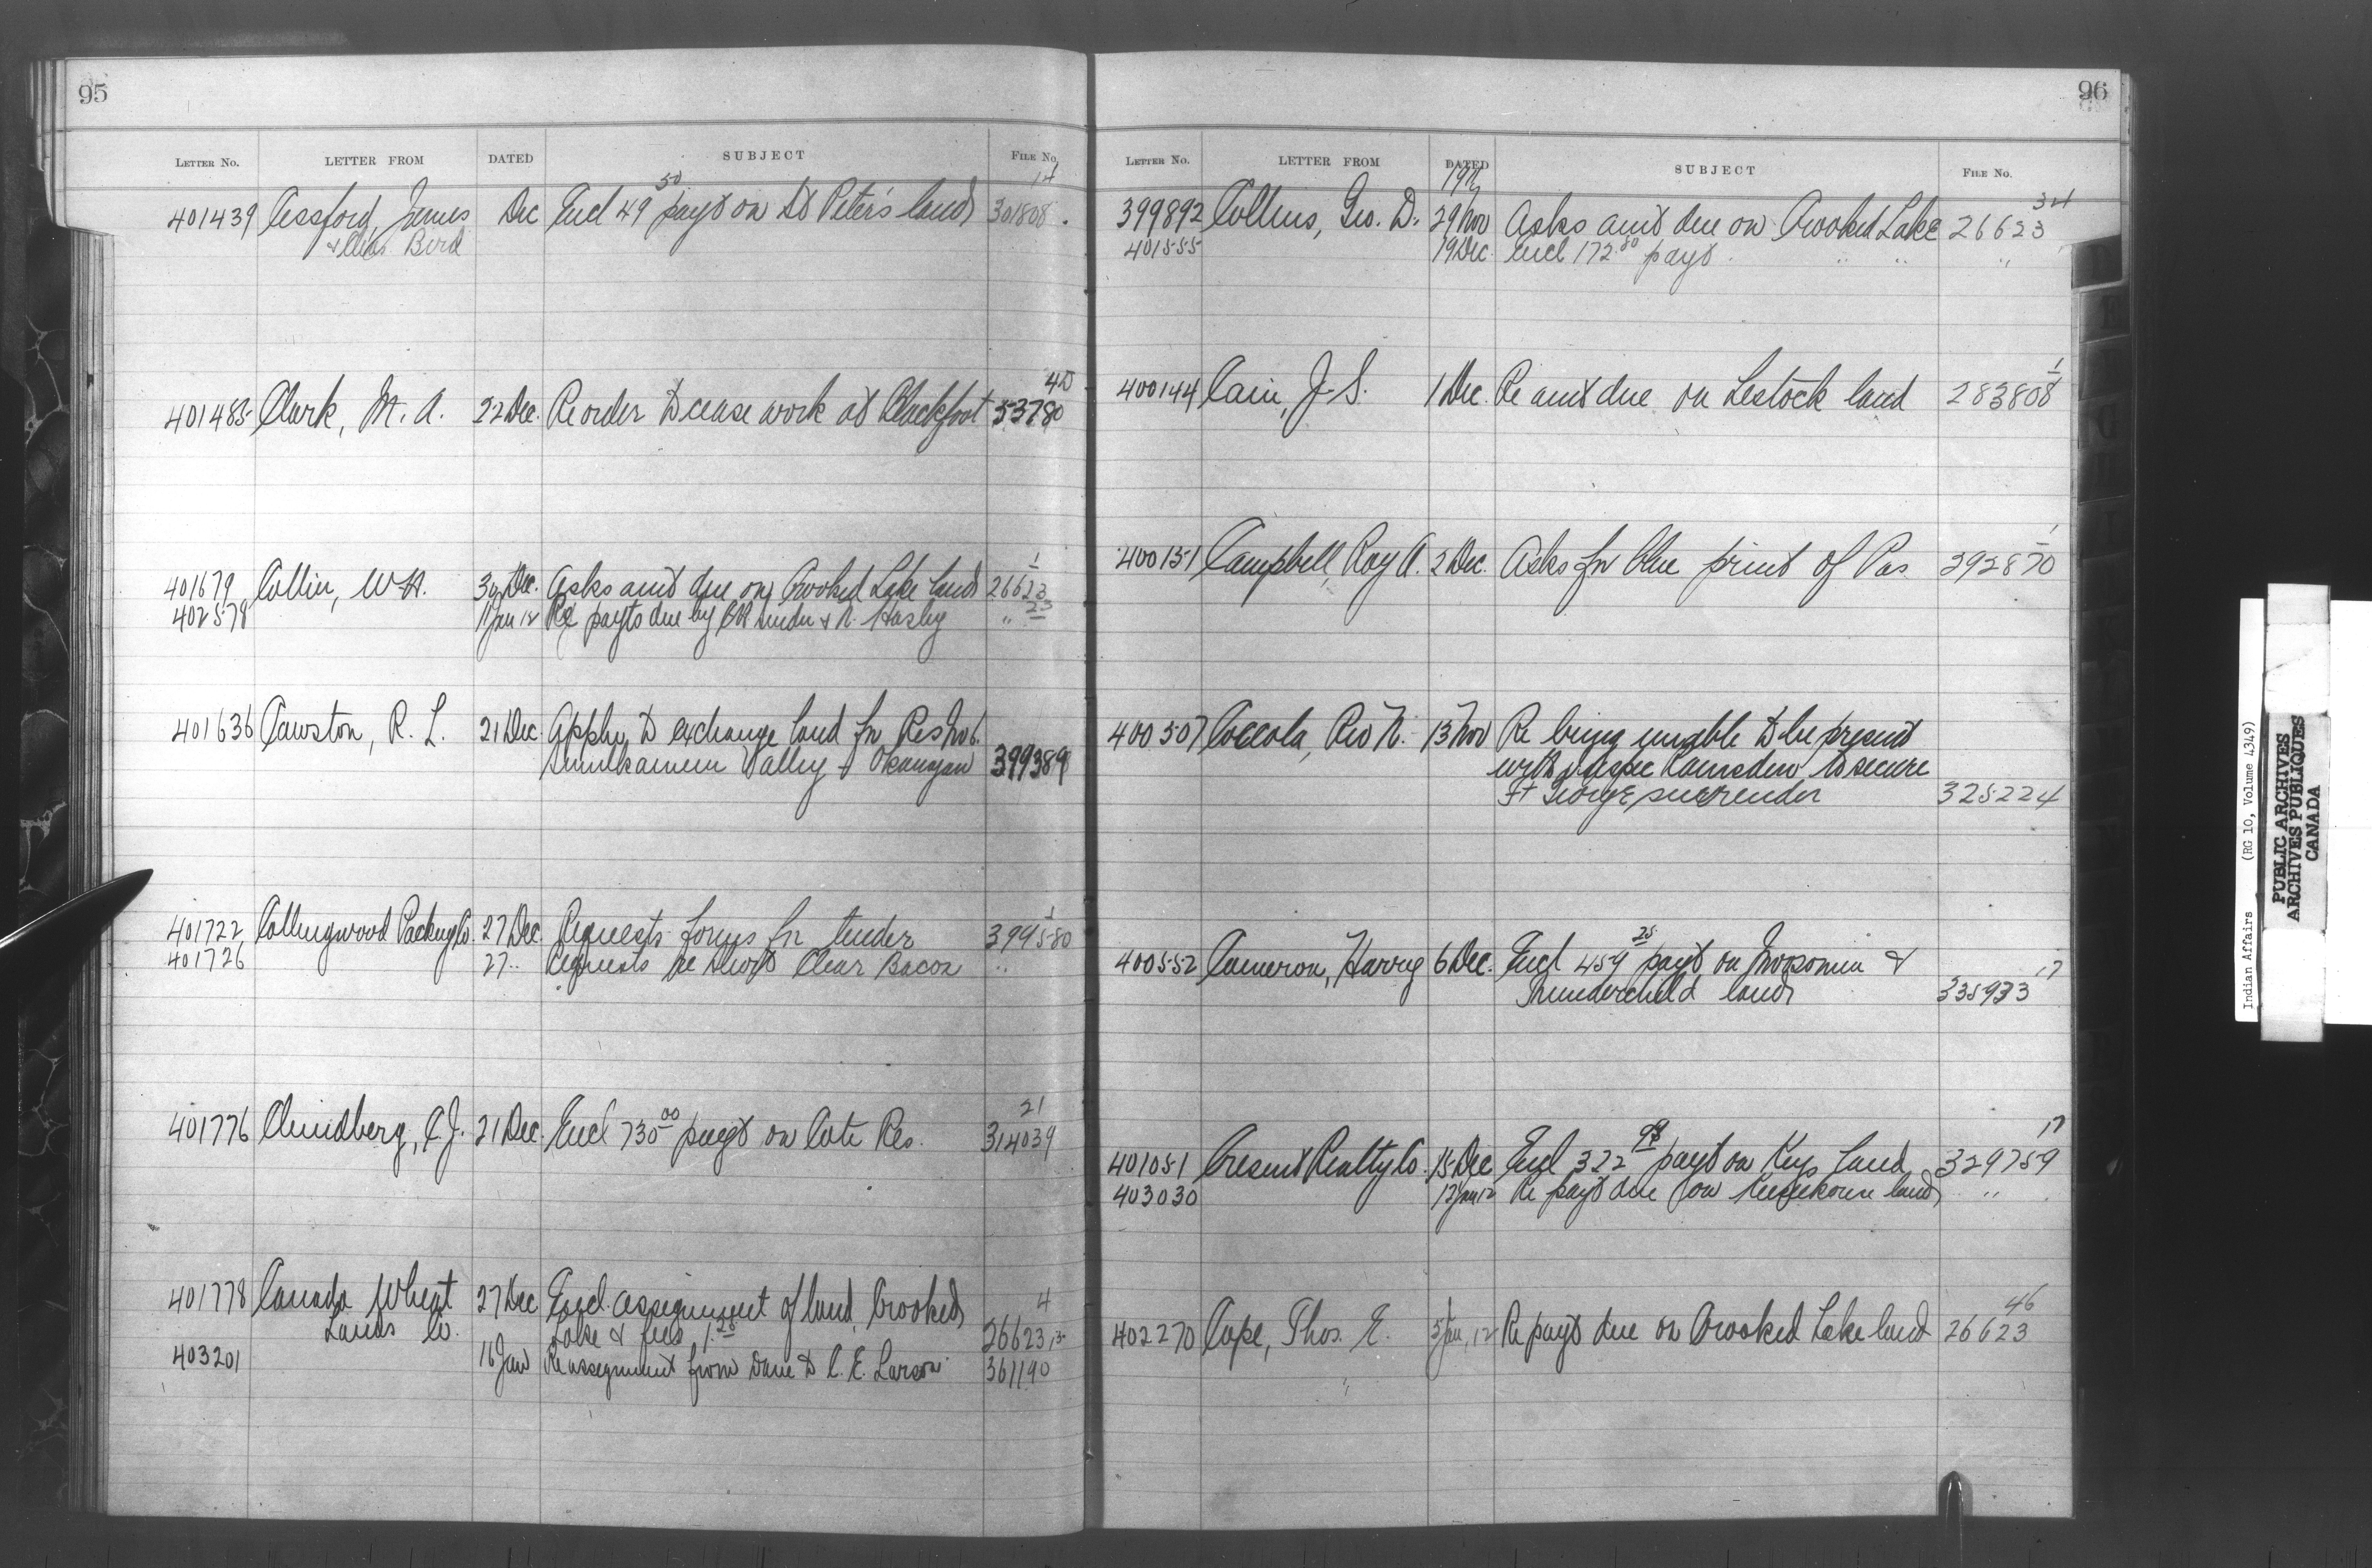 95
LETTER No. LETTER FROM DATED SUBJECT FILE No.
14
401439 Cessford, James Dec Encl 49 50 payt on St Peter's lands 301808
& Chas Bird
40
401485 Clark, M. A. 22 Dec. Re order to cease work at Blackfoot 53780
1
401679 Collin, W. H. 30 Dec. Asks amt due on Crooked Lake lands 26623
402578 11 Jan 12 Re payts due by & N. Hasby " 23
401636 Cawston, R. L. 21 Dec. Applen to exchange land for Res No 6.
Similkameen Valley Okanagan 399389
1
401722 Collingwood Packing Co. 27 Dec Requests forms for tender 394580
401726 27 " Requests re Short Clear Bacon "
21
401776 , C. J. 21 Dec. Encl 730 00 payt on Cote Res. 314039
4
401778 Canada Wheat 27 Dec Encl. assignment of land, Crooked
Lands Co. Lake & fees 26623
403201 16 Jan Re assignment from Dane to C. E. Larson 361190
96
LETTER No. LETTER FROM DATED SUBJECT FILE No.
1911 34
399892 Collins, Geo. D. 29 Nov Asks amt due on Crooked Lake 26623
401555 19 Dec. Encl 172.80 payt. " " "
1
400144 Cain, J. S. 1 Dec. Re amt due on Lestock land 283808
1
400151 Campbell, Roy A. 2 Dec. Asks for blue print of Pas 392870
400507 Coccola, Rev N. 13 Nov Re being unable to be present
with Inspec Ramsden to secure
Ft George surrender 325224
25
400552 Cameron, Harry 6 Dec. Encl 459 payt on Moosomin & 17
Thunderchild lands 335933
17
401051 Cresent Realty Co. 15 Dec Encl 322 payt on Keys land 329759
403030 12 Jan 12 Re payt due on Keeseekouse lands "
46
402270 Cope, Thos. E. 5 Jan, 12 Re payt due on Crooked Lake land 26623
Indian Affairs (RG 10, Volume 4349)
PUBLIC ARCHIVES
ARCHIVES PUBLIQUES
CANADA